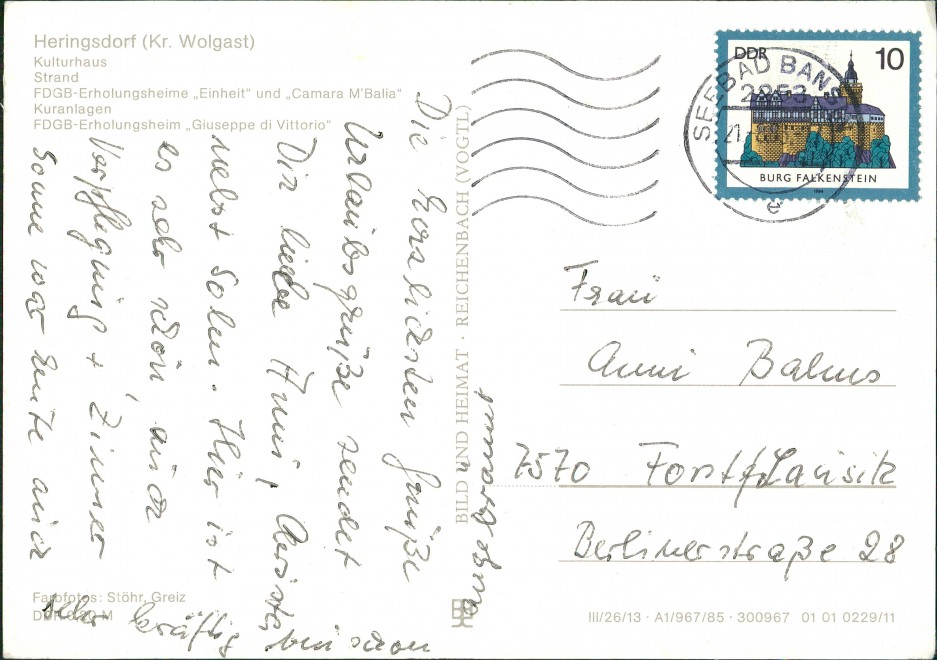 Heringsdorf (Kr. Wolgast)
Kulturhaus
Strand
FDGB-Erholungsheime „Einheit" und „Camara M'Balia"
Kuranlagen
FDGB-Erholungsheim „Giuseppe di Vittorio"
Die herzlichsten Grüße
Urlaubsgrüße sendet
Dir liebe Anni,
nebst Sohn. Hier ist
es sehr schön, auch
Verpflegung + Zimmer
Sonne war heute auch
sehr kräftig bin schon
braun
Farbfotos: Stöhr, Greiz
DDR M
BILD UND HEIMAT · REICHENBACH (VOGTL)
DDR 10
BURG FALKENSTEIN
SEEBAD BANSIN
2253
21
e
Frau
Anni Balms
7570 Forst/Lausitz
Berlinerstraße 28
III/26/13 · A1/967/85 · 300967 01 01 0229/11